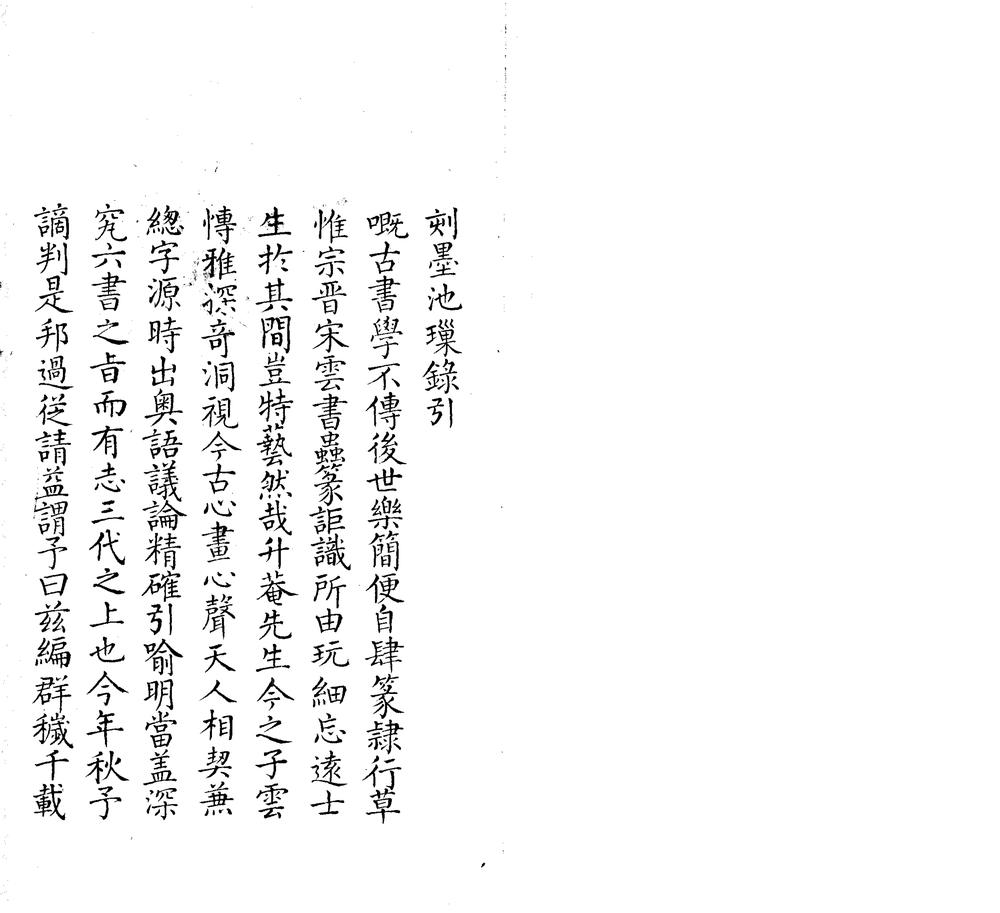 刻墨池璅錄引
嘅古書學不傳後世樂簡便自肆篆隸行草
惟宗晋宋雲書蟲篆詎識所由玩細忘遠士
生扵其間豈特藝然哉升菴先生今之子雲
愽雅深竒洞視今古心畫心聲天人相契蒹
緫字源時出奥語議論精確引喻明當盖深
究六書之㫖而有志三代之上也今年秋予
謫判是邦過従請益謂予曰兹編群穢千載